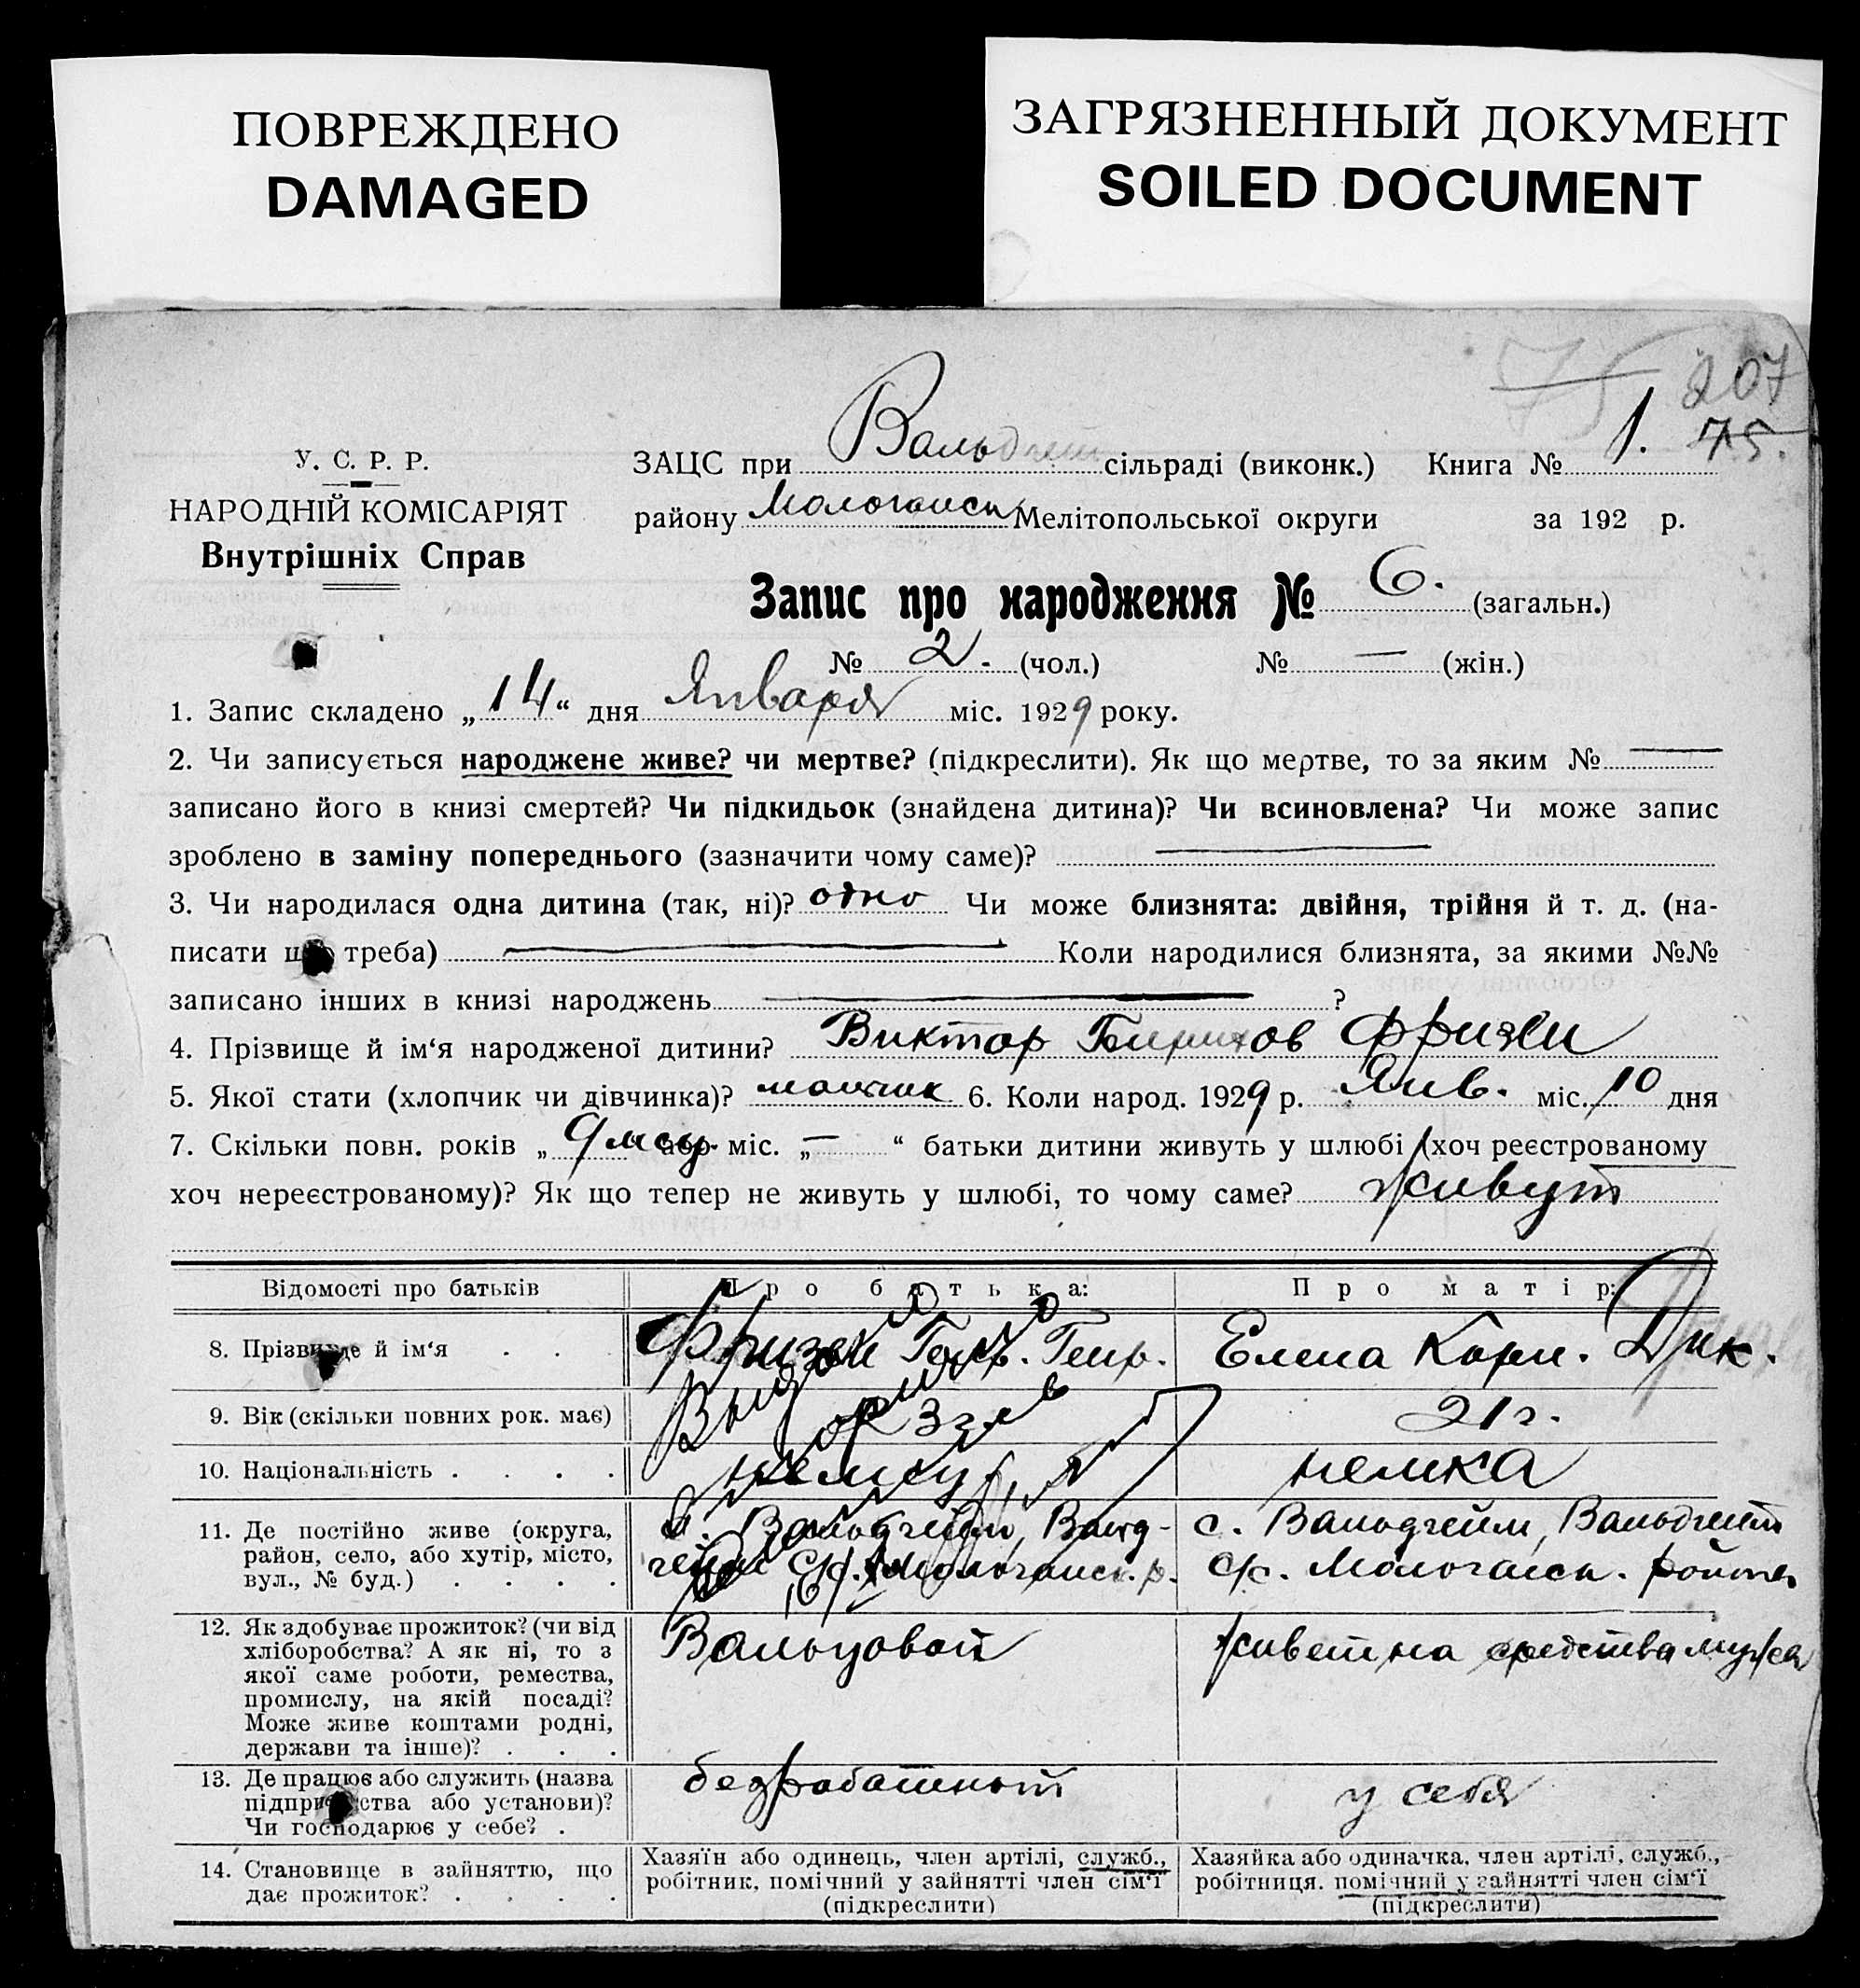 ПОВРЕЖДЕНО
DAMAGED
ЗАГРЯЗНЕННЫЙ ДОКУМЕНТ
SOILED DOCUMENT
75 207
У. С. Р. Р.
НАРОДНІЙ КОМІСАРІЯТ
Внутрішніх Справ
ЗАЦС при Вальдгейм сільраді (виконк.) Книга № 1. 75.
району Молочанск Мелітопольської округи за 192 р.
Запис про народження № 6. (загальн.)
№ 2. (чол.) № — (жін.)
1. Запис складено „14“ дня Января міс. 1929 року.
2. Чи записується народжене живе? чи мертве? (підкреслити). Як що мертве, то за яким № —
записано його в книзі смертей? Чи підкидьок (знайдена дитина)? Чи всиновлена? Чи може запис
зроблено в заміну попереднього (зазначити чому саме)? —
3. Чи народилася одна дитина (так, ні)? одно Чи може близнята: двійня, трійня й т. д. (на-
писати що треба) — Коли народилися близнята, за якими №№
записано інших в книзі народжень — ?
4. Прізвище й ім‘я народженої дитини? Виктор Генрихов Фризен
5. Якої стати (хлопчик чи дівчинка)? мальчик 6. Коли народ. 1929 р. Янв. міс. 10 дня
7. Скільки повн. років „ 9 мсц. або міс. „ — “ батьки дитини живуть у шлюбі (хоч реєстрованому
хоч нереєстрованому)? Як що тепер не живуть у шлюбі, то чому саме? живут
Відомості про батьків
Про батька:
Про матір:
8. Прізвище й ім‘я . . .
Фризен Генр. Генр.
Елена Корн. Дик.
9. Вік (скільки повних рок. має)
21 г.
10. Національність . . . .
немец
немка
11. Де постійно живе (округа,
район, село, або хутір, місто,
вул., № буд.) . . . .
с. Вальдгейм, Вальд-
гейм с/с. Молочанск. р.
с. Вальдгейм, Вальдгейм
с/с. Молочанск. района
12. Як здобуває прожиток? (чи від
хліборобства? А як ні, то з
якої саме роботи, ремества,
промислу, на якій посаді?
Може живе коштами родні,
держави та інше)? . . .
Вальцовой
живет на средства мужа
13. Де працює або служить (назва
підприємства або установи)?
Чи господарює у себе? .
безработный
у себя
14. Становище в зайняттю, що
дає прожиток? . . . .
Хазяїн або одинець, член артілі, служб.,
робітник, помічний у зайнятті член сім‘ї
(підкреслити)
Хазяйка або одиначка, член артілі, служб.,
робітниця, помічний у зайнятті член сім‘ї
(підкреслити)